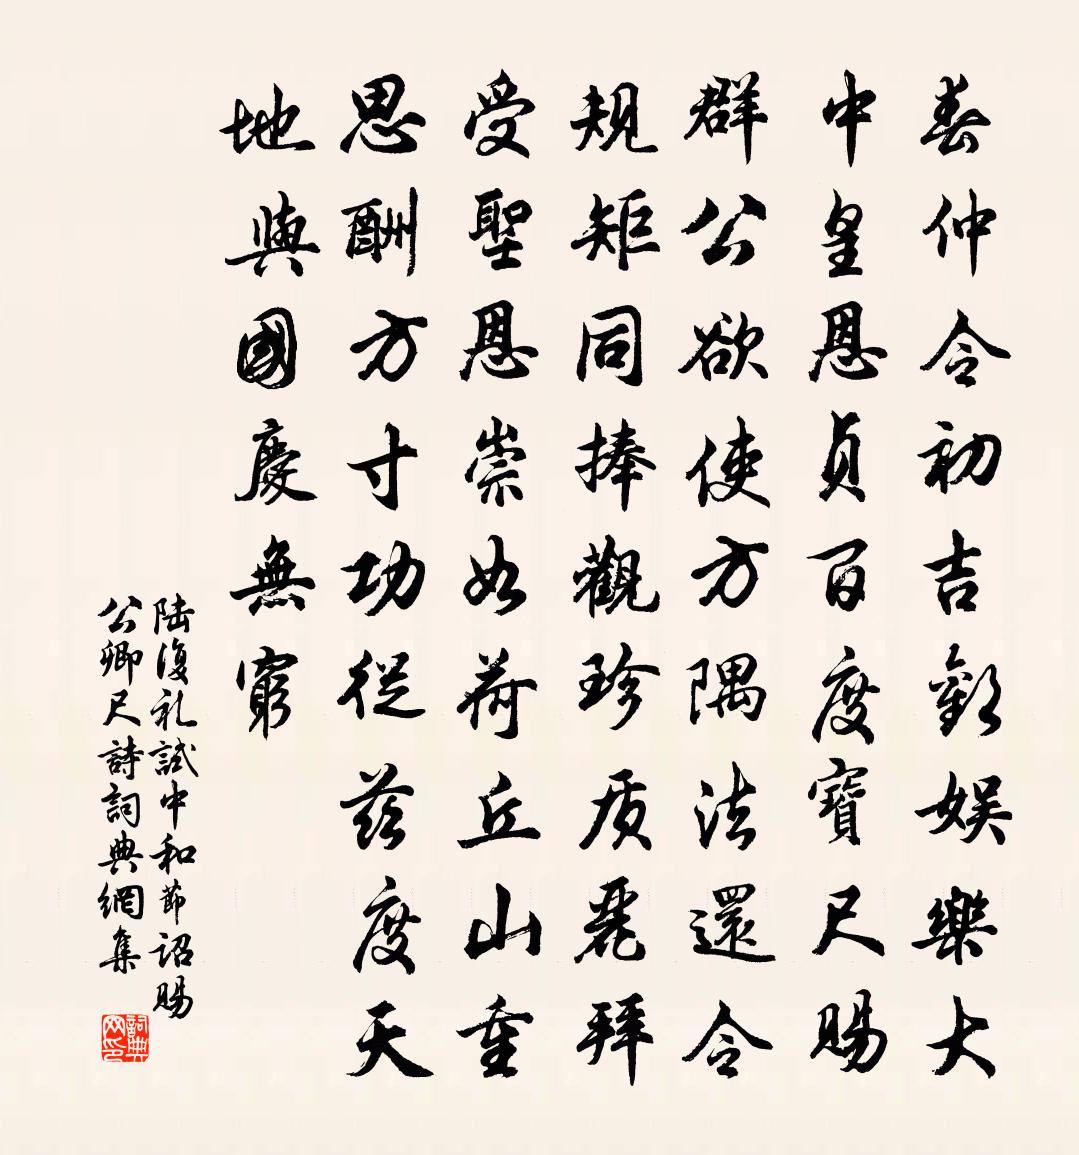 春仲令初吉歡娱樂大
中皇恩貞百度寶尺賜
群公欲使方隅法還令
規矩同捧觀珍质麗拜
受聖恩崇如荷丘山重
思酬方寸功從兹度天
地與國慶無窮
陆復礼試中和節詔賜
公卿尺詩詞典網集
詞典
网印